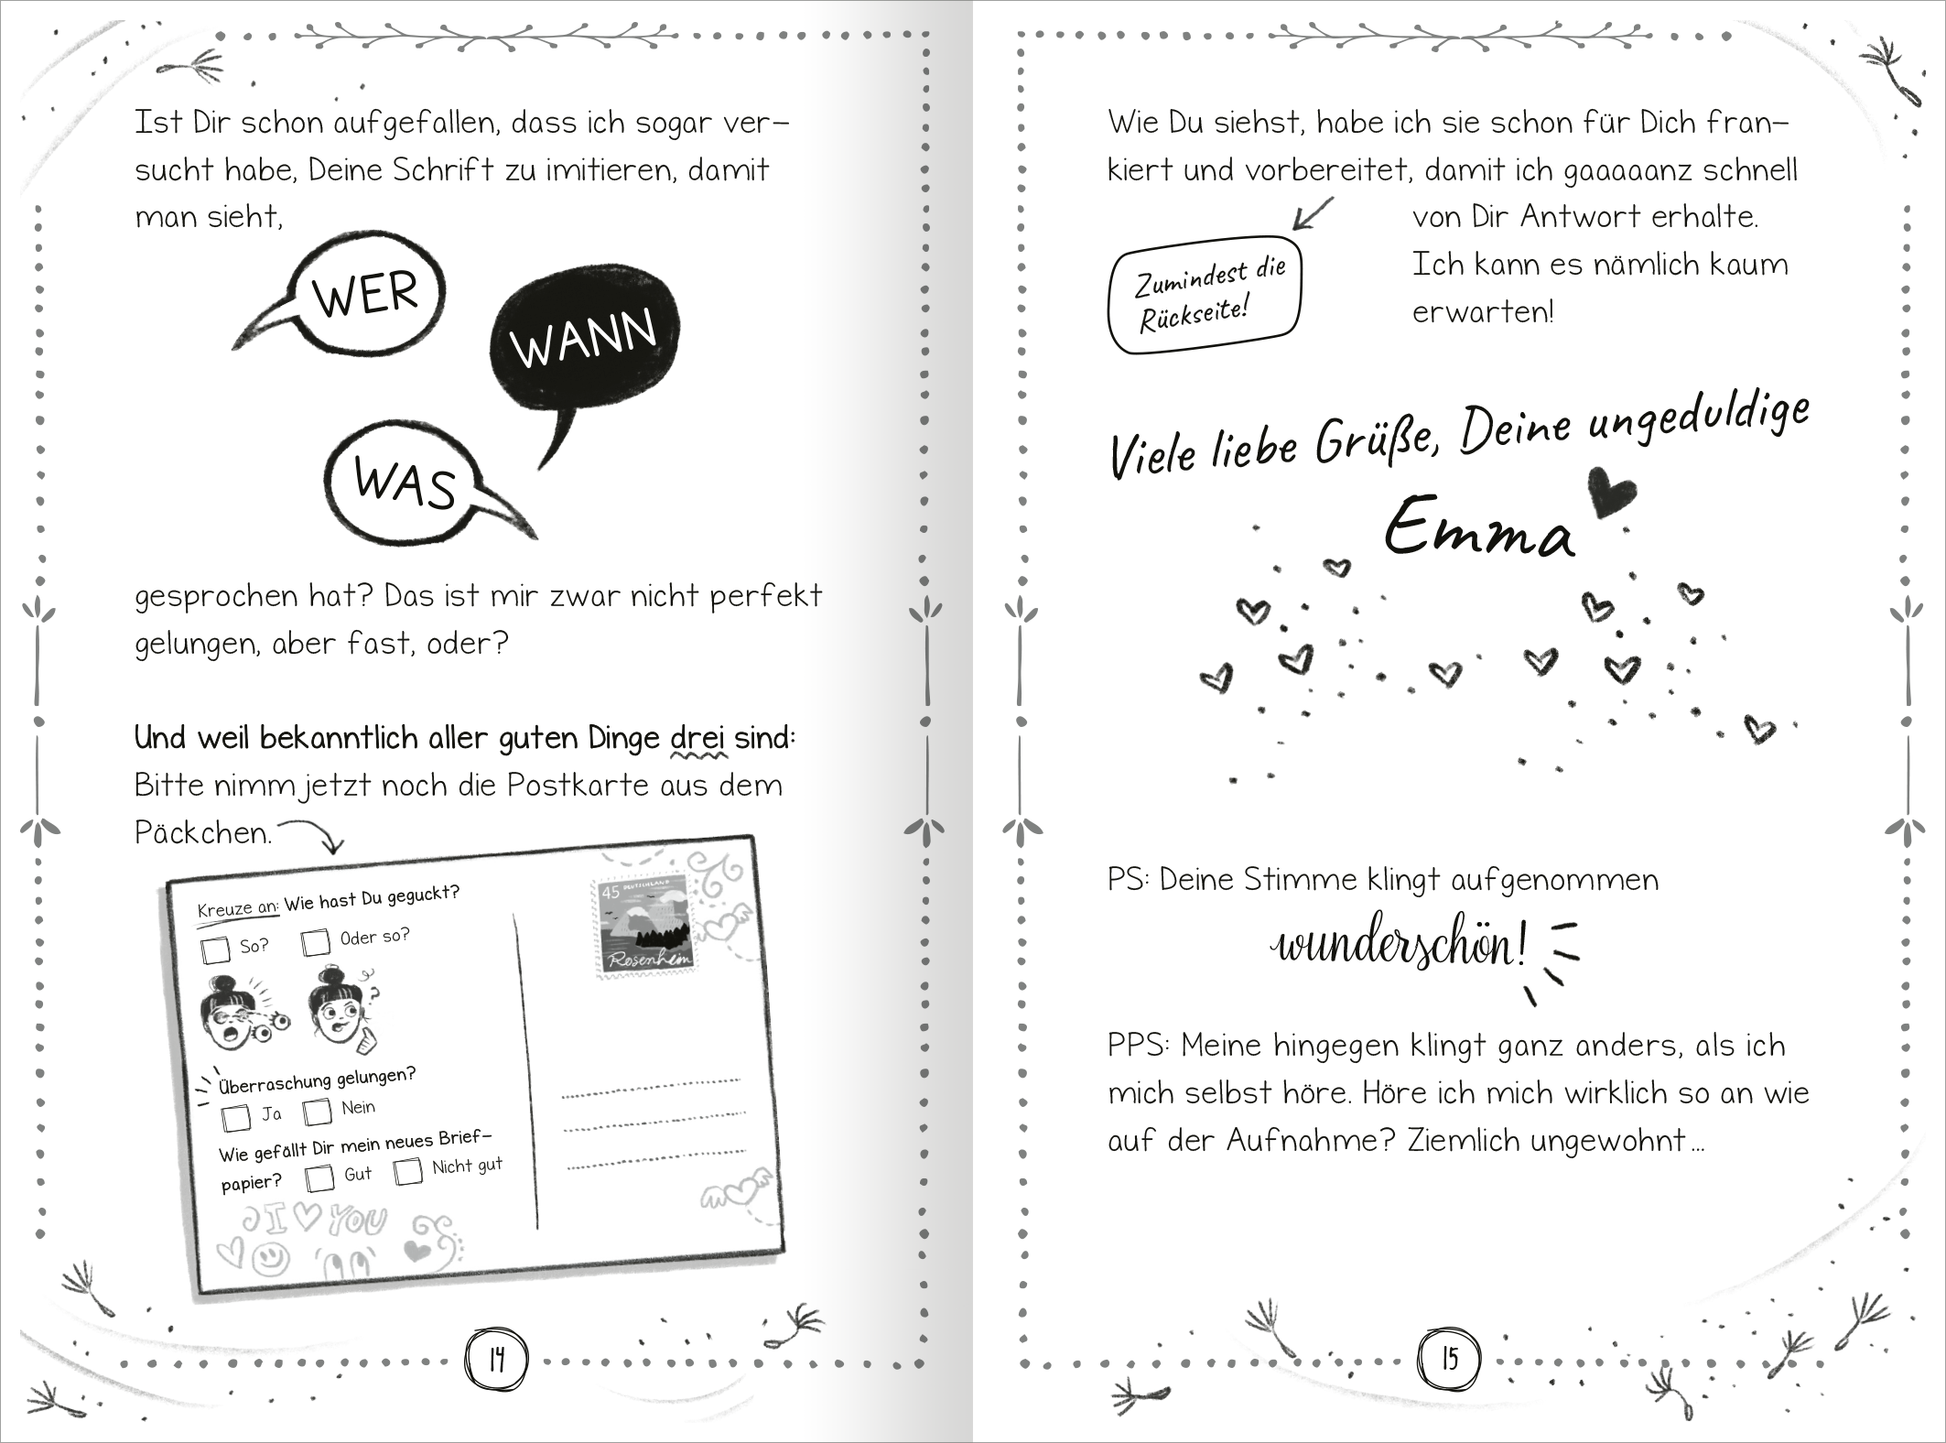 Ist Dir schon aufgefallen, dass ich sogar ver-
sucht habe, Deine Schrift zu imitieren, damit
man sieht,
WER
WANN
WAS
gesprochen hat? Das ist mir zwar nicht perfekt
gelungen, aber fast, oder?
Und weil bekanntlich aller guten Dinge drei sind:
Bitte nimm jetzt noch die Postkarte aus dem
Päckchen.
Kreuze an: Wie hast Du geguckt?
So? Oder so?
?
Überraschung gelungen?
Ja Nein
Wie gefällt Dir mein neues Brief-
papier? Gut Nicht gut
I ♡ YOU
45 DEUTSCHLAND
Rosenheim
14
Wie Du siehst, habe ich sie schon für Dich fran-
kiert und vorbereitet, damit ich gaaaaanz schnell
von Dir Antwort erhalte.
Ich kann es nämlich kaum
erwarten!
Zumindest die
Rückseite!
Viele liebe Grüße, Deine ungeduldige
Emma
PS: Deine Stimme klingt aufgenommen
wunderschön!
PPS: Meine hingegen klingt ganz anders, als ich
mich selbst höre. Höre ich mich wirklich so an wie
auf der Aufnahme? Ziemlich ungewohnt ...
15